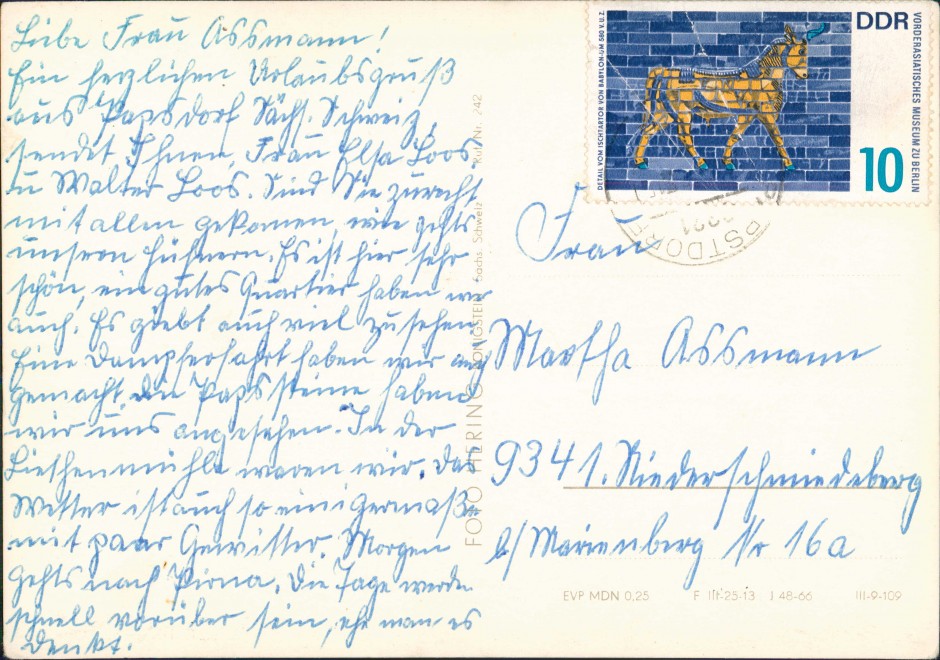 Liebe Frau Assmann!
Ein herzlichen Urlaubsgruß
aus Papsdorf Sächs. Schweiz,
sendet Ihnen, Frau Elsa Loos
u Walter Loos. Sind Sie zurecht
mit allen gekomen, wie gehts
unsern Hühnern. Es ist hier sehr
schön, ein gutes Quartier haben wir
auch. Es giebt auch viel zu sehen
Eine Dampferfahrt haben wir auch
gemacht, die Papssteine haben
wir uns angesehen. In der
Liethenmühle waren wir. Das
Wetter ist auch so einigermaße
mit paar Gewitter. Morgen
gehts nach Pirna. Die Tage werden
schnell vorüber sein, ehe man es
denkt.
FOTO HERING KÖNIGSTEIN Sächs. Schweiz
DETAIL VOM ISCHTARTOR VON BABYLON·UM 580 V.U.Z.
DDR
VORDERASIATISCHES MUSEUM ZU BERLIN
10
Frau
Martha Assmann
9341. Niederschmiedeberg
b/ Marienberg Nr 16a
EVP MDN 0,25 F III-25-13 J 48-66 III-9-109